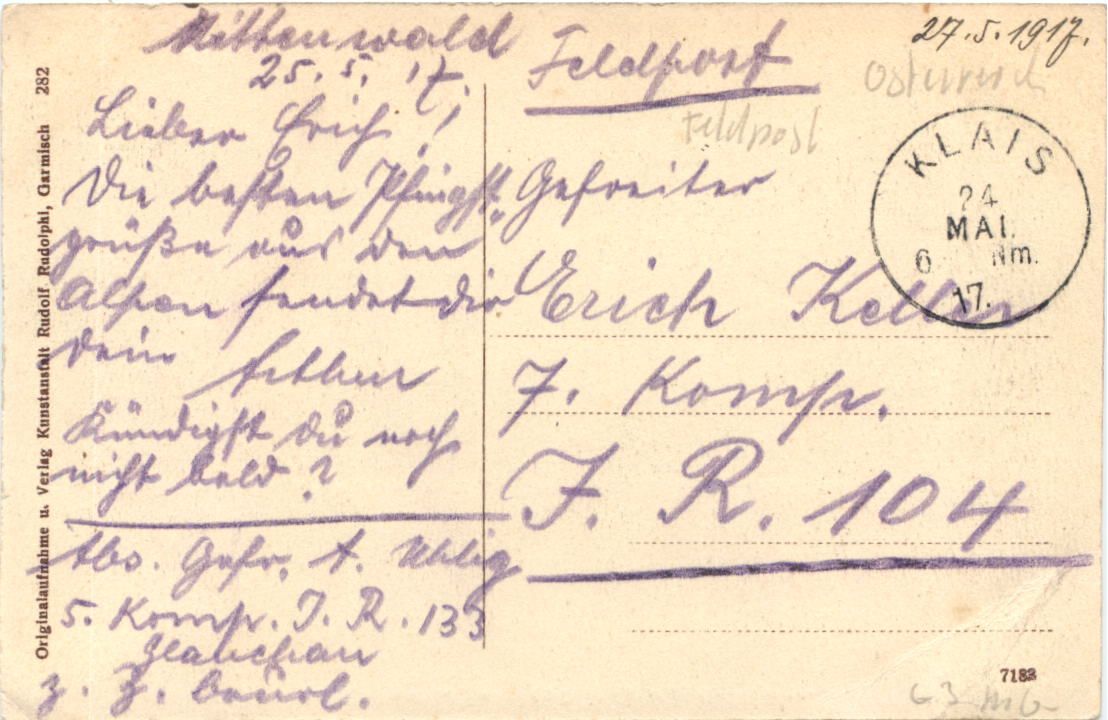 Mittenwald
25.5.17.
Lieber Erich!
Die besten Pfingst„
grüße aus den
Alpen sendet dir
dein
Arthur
Kündigst du noch
nicht bald?
Abs. Gefr. A. Uhlig
5. Komp. I. R. 133
Glauchau
z. Z. beurl.
Feldpost
27.5.1917.
Österreich
Feldpost
KLAIS
24
MAI.
6 Nm.
17.
Gefreiter
Erich Keller
7. Komp.
I. R. 104
Originalaufnahme u. Verlag Kunstanstalt Rudolf Rudolphi, Garmisch 282
7183